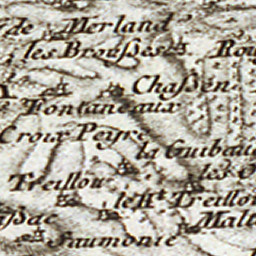 de Merland
les Brousses
Chassen
Fontaneaux
Croix Peyre
la Guibau
Treillou
les
le Ht. Treillou
Malt
Saumonie